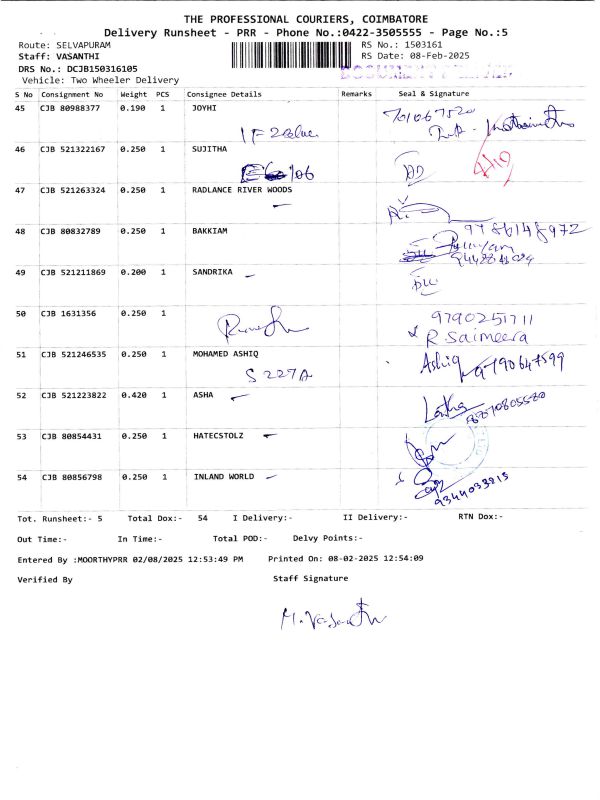 THE PROFESSIONAL COURIERS, COIMBATORE
Delivery Runsheet - PRR - Phone No.:0422-3505555 - Page No.:5
Route: SELVAPURAM
RS No.: 1503161
Staff: VASANTHI
RS Date: 08-Feb-2025
DRS No.: DCJB150316105
Vehicle: Two Wheeler Delivery
S No Consignment No Weight PCS Consignee Details Remarks Seal & Signature
45 CJB 80988377 0.190 1 JOYHI
46 CJB 521322167 0.250 1 SUJITHA
106
47 CJB 521263324 0.250 1 RADLANCE RIVER WOODS
48 CJB 80832789 0.250 1 BAKKIAM
9786148972
49 CJB 521211869 0.200 1 SANDRIKA
50 CJB 1631356 0.250 1
9790251711
R Saimeera
51 CJB 521246535 0.250 1 MOHAMED ASHIQ Ashiq
S 227A
52 CJB 521223822 0.420 1 ASHA
53 CJB 80854431 0.250 1 HATECSTOLZ
54 CJB 80856798 0.250 1 INLAND WORLD
9344033213
Tot. Runsheet:- 5 Total Dox:- 54 I Delivery:- II Delivery:- RTN Dox:-
Out Time:- In Time:- Total POD:- Delvy Points:-
Entered By :MOORTHYPRR 02/08/2025 12:53:49 PM Printed On: 08-02-2025 12:54:09
Verified By Staff Signature